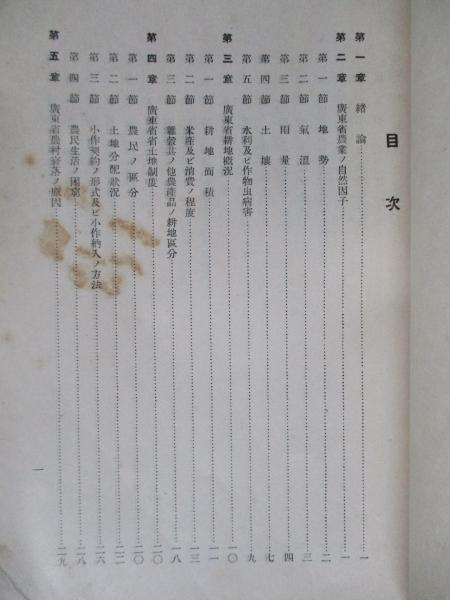 目次
第一章 緒論……一
第二章 廣東省農業ノ自然因子……一
第一節 地勢……二
第二節 氣溫……三
第三節 雨量……四
第四節 土壤……七
第五節 水利及ビ作物虫病害……九
第三章 廣東省耕地槪況……一〇
第一節 耕地面積……一一
第二節 米產及ビ消費ノ程度……一三
第三節 雜穀其ノ他農產品ノ耕地區分……一八
第四章 廣東省省土地制度……二〇
第一節 農民ノ區分……二〇
第二節 土地分配狀況……二二
第三節 小作契約ノ形式及ビ小作納入ノ方法……二六
第四節 農民生活ノ困窮……二八
第五章 廣東省農村衰落ノ原因……二九
一